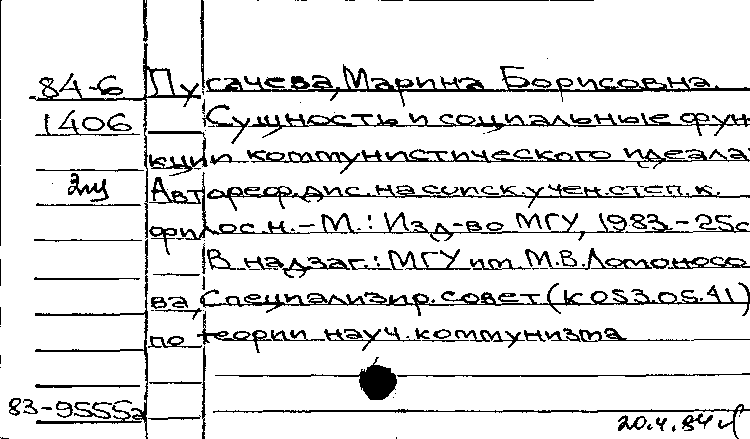 84-6 Пусачева, Марина Борисовна.
1406 Сущность и социальные фун-
кции коммунистического идеала:
Автореф. дис. на соиск. учен. степ. к.
филос. н. - М.: Изд-во МГУ, 1983. - 25с
В надзаг.: МГУ им. М.В.Ломоносо
ва, Специализир. совет (К 053.05.41)
по теории науч. коммунизма
83-9555а
20.4.84